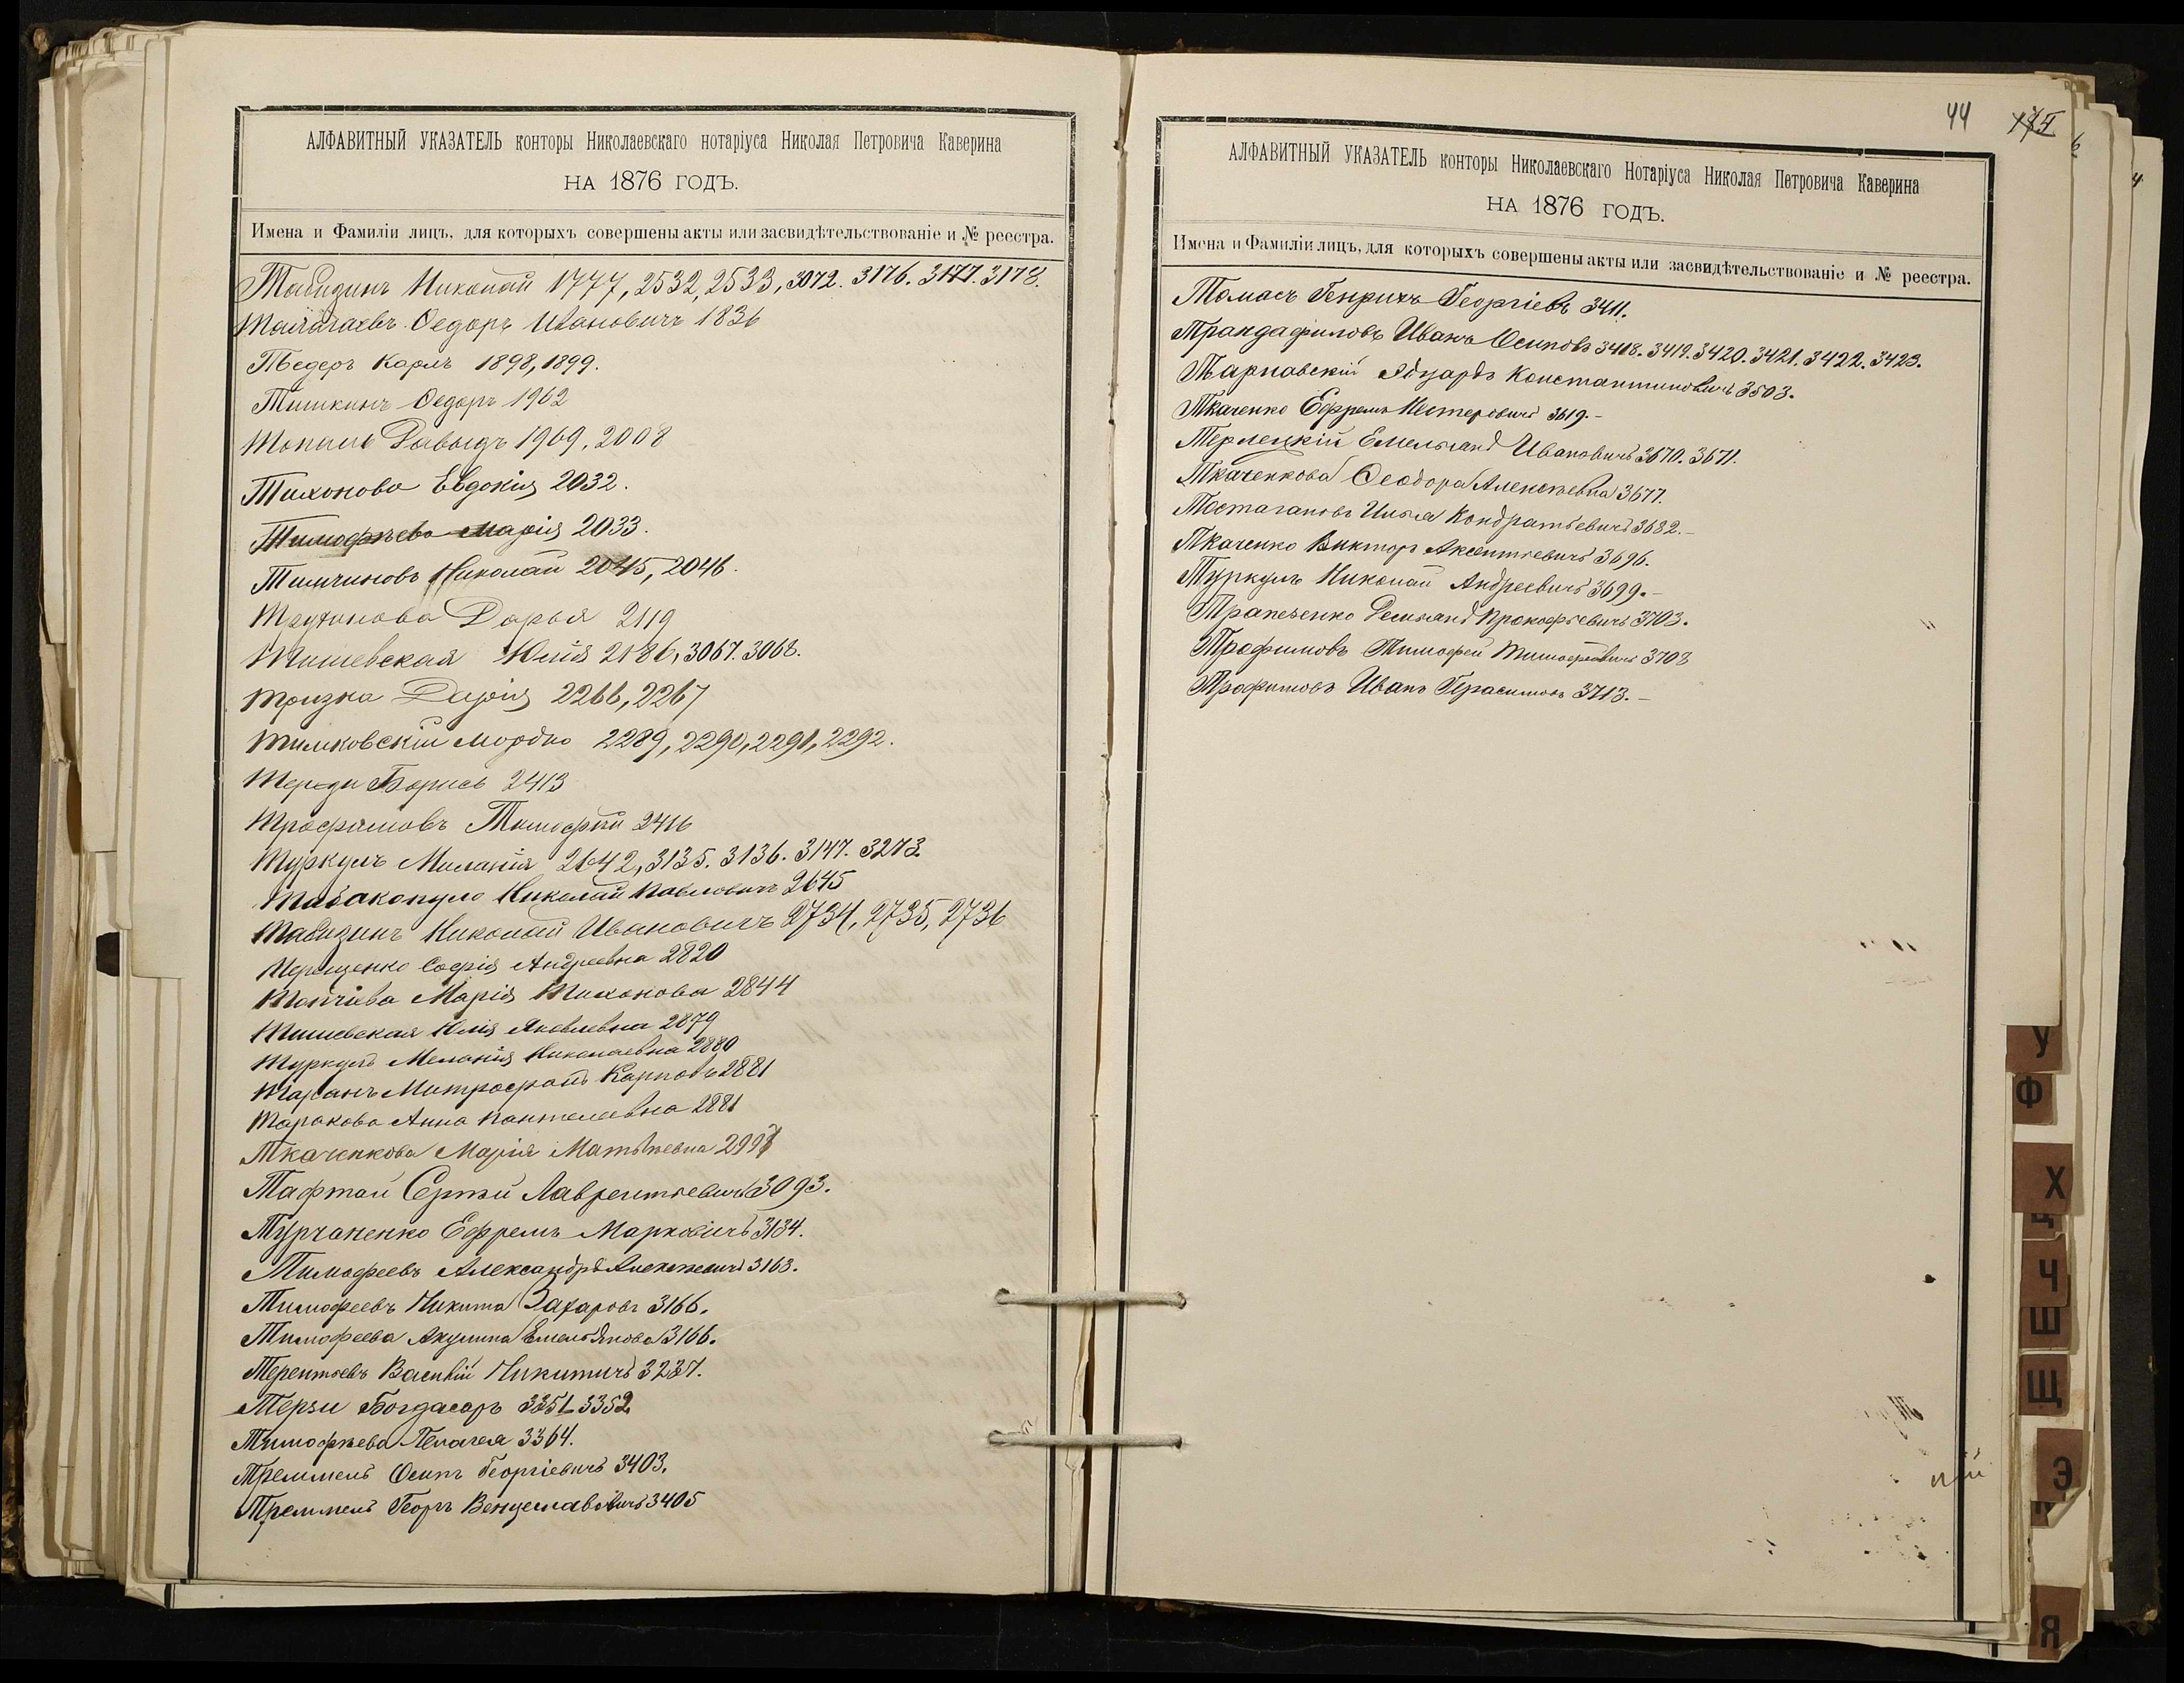 АЛФАВИТНЫЙ УКАЗАТЕЛЬ конторы Николаевскаго нотаріуса Николая Петровича Каверина
НА 1876 ГОДЪ.
Имена и Фамиліи лицъ, для которыхъ совершены акты или засвидѣтельствованіе и № реестра.
Табизинъ Николай 1777, 2532, 2533, 3072. 3176. 3177. 3178.
Ѳедоръ Ивановичъ 1836
Тведеръ Карлъ 1898, 1899.
Тишкинъ Ѳедоръ 1962
Топаль Давыдъ 1969, 2008
Тихонова Евдокія 2032.
Тимофѣева Марія 2033.
Тимчиновъ Николай 2045, 2046.
Трутанова Дарья 2119
Тишевская Юлія 2186, 3067. 3068.
Тризна Дарія 2266, 2267
Тимковскій Мордко 2289, 2290, 2291, 2292.
Терзи Борисъ 2413
Трофимовъ Тимофѣй 2416
Туркулъ Меланія 2642, 3135. 3136. 3147. 3273.
Табакопуло Николай Павловичъ 2645
Табизинъ Николай Ивановичъ 2734, 2735, 2736
Терещенко Софія Андреевна 2820
Топчіева Марія Тихонова 2844
Тишевская Юлія Яковлевна 2879
Туркулъ Меланія Николаевна 2880
Таранъ Митрофанъ Карповъ 2881
Таранова Анна Пантелеевна 2881
Ткаченкова Марія Матвѣевна
Тафтай Сергѣй Лаврентьевичъ 3093.
Турчаненко Ефремъ Марковичъ 3134.
Тимофеевъ Александръ Алексѣевичъ 3163.
Тимофеевъ Никита Захаровъ 3166.
Тимофеева Акулина Емельянова 3166.
Терентьевъ Василій Никитичъ 3237.
Терзи Богдасаръ 3351. 3352.
Тимофѣева Пелагея 3364.
Треммель Осипъ Георгіевичъ 3403.
Треммель Георгъ Венцеславовичъ 3405
44
АЛФАВИТНЫЙ УКАЗАТЕЛЬ конторы Николаевскаго Нотаріуса Николая Петровича Каверина
НА 1876 ГОДЪ.
Имена и Фамиліи лицъ, для которыхъ совершены акты или засвидѣтельствованіе и № реестра.
Томасъ Генрихъ Георгіевъ 3411.
Трандафиловъ Иванъ Осиповъ 3418. 3419. 3420. 3421. 3422. 3423.
Тарнавскій Эдуардъ Константиновичъ 3503.
Ткаченко Ефремъ Нестеровичъ 3619.-
Терлецкій Емельянъ Ивановичъ 3670. 3671.
Ткаченкова Ѳеодора Алексѣевна 3677.
Тестагановъ Илья Кондратьевичъ 3682.-
Ткаченко Викторъ Аксентьевичъ 3696.
Туркулъ Николай Андреевичъ 3699.-
Трапезенко Демьянъ Прокофьевичъ 3703.
Трофимовъ Тимофей Тимофѣевичъ 3708
Трофимовъ Иванъ Герасимовъ 3713.-
У
Ф
Х
Ц
Ч
Ш
Щ
Э
Я